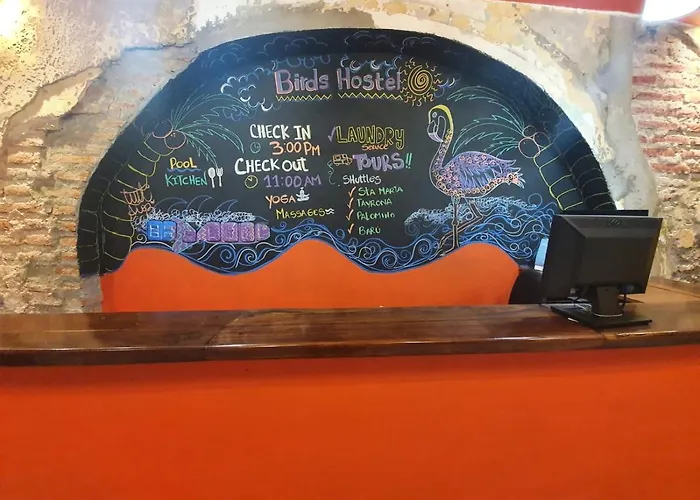 Birds Hostel
CHECK IN
3:00 PM
CHECK OUT
11:00 AM
YOGA
MASSAGES
POOL
KITCHEN
LAUNDRY
Service
TOURS!!
Shuttles
STA MARTA
TAYRONA
PALOMINO
BARÚ